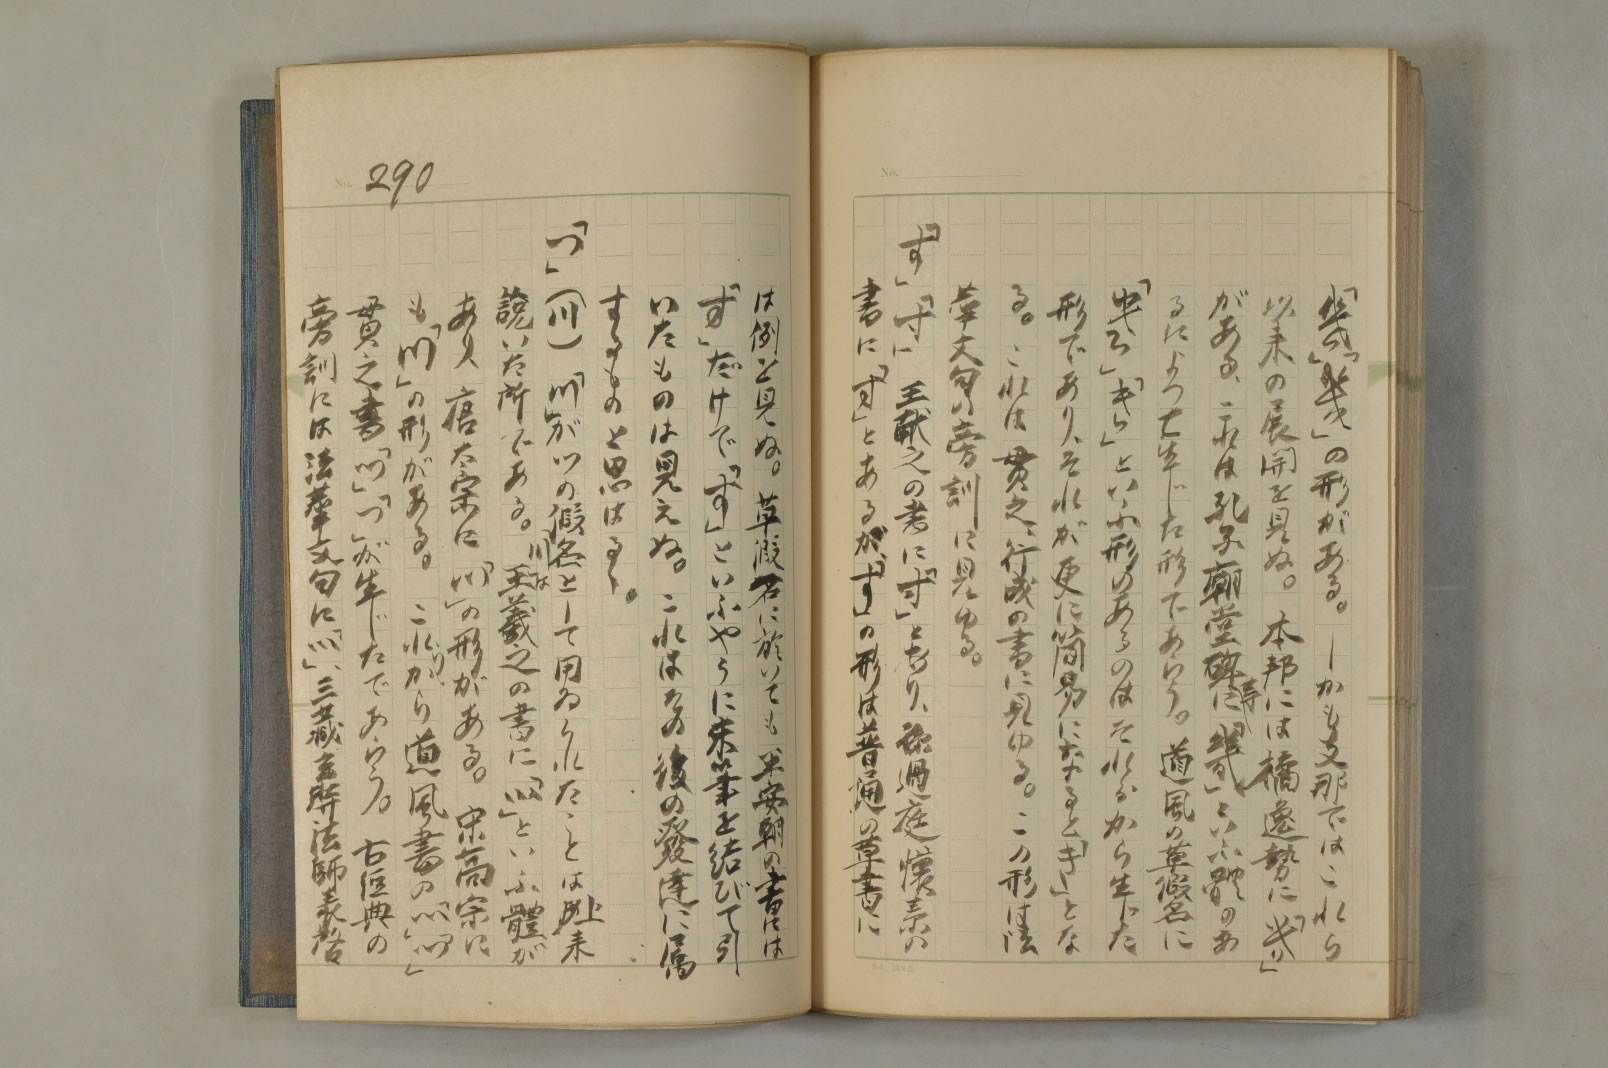 「㡬」「㡬」の形がある。しかも支那ではこれら
以来の展開を見ぬ。本邦には橘逸勢に「」
がある、これは孔子廟堂碑に「幾」といふ體のあ
るによつて生じた形であらう。道風の草假名に
「」「き」といふ形のあるのはそれらから生じた
形であり、それが更に簡易になると「き」とな
る。これは貫之、行成の書に見ゆる。この形は法
華文句の旁訓に見ゆる。
「す」「寸」 王献之の書に「す」とあり、孫過庭懐素の
書に「す」とあるが、「す」の形は普通の草書に
No.
No. 290
は例を見ぬ。草假名に於いても平安朝の書には
「す」だけで「す」といふやうに末筆を結びて引
いたものは見えぬ。これはその後の發達に属
するものと思はる。
「つ」(川)「川」がツの假名として用ゐられたことは上来
説いた所である。川は王羲之の書に「」といふ體が
あり、唐太宗に「」の形がある。宋高宗に
も「」の形がある。これから道風書の「」「」
貫之書「」「つ」が生じたであらう。古経典の
旁訓には法華文句に「」、三藏玄奘法師表啓